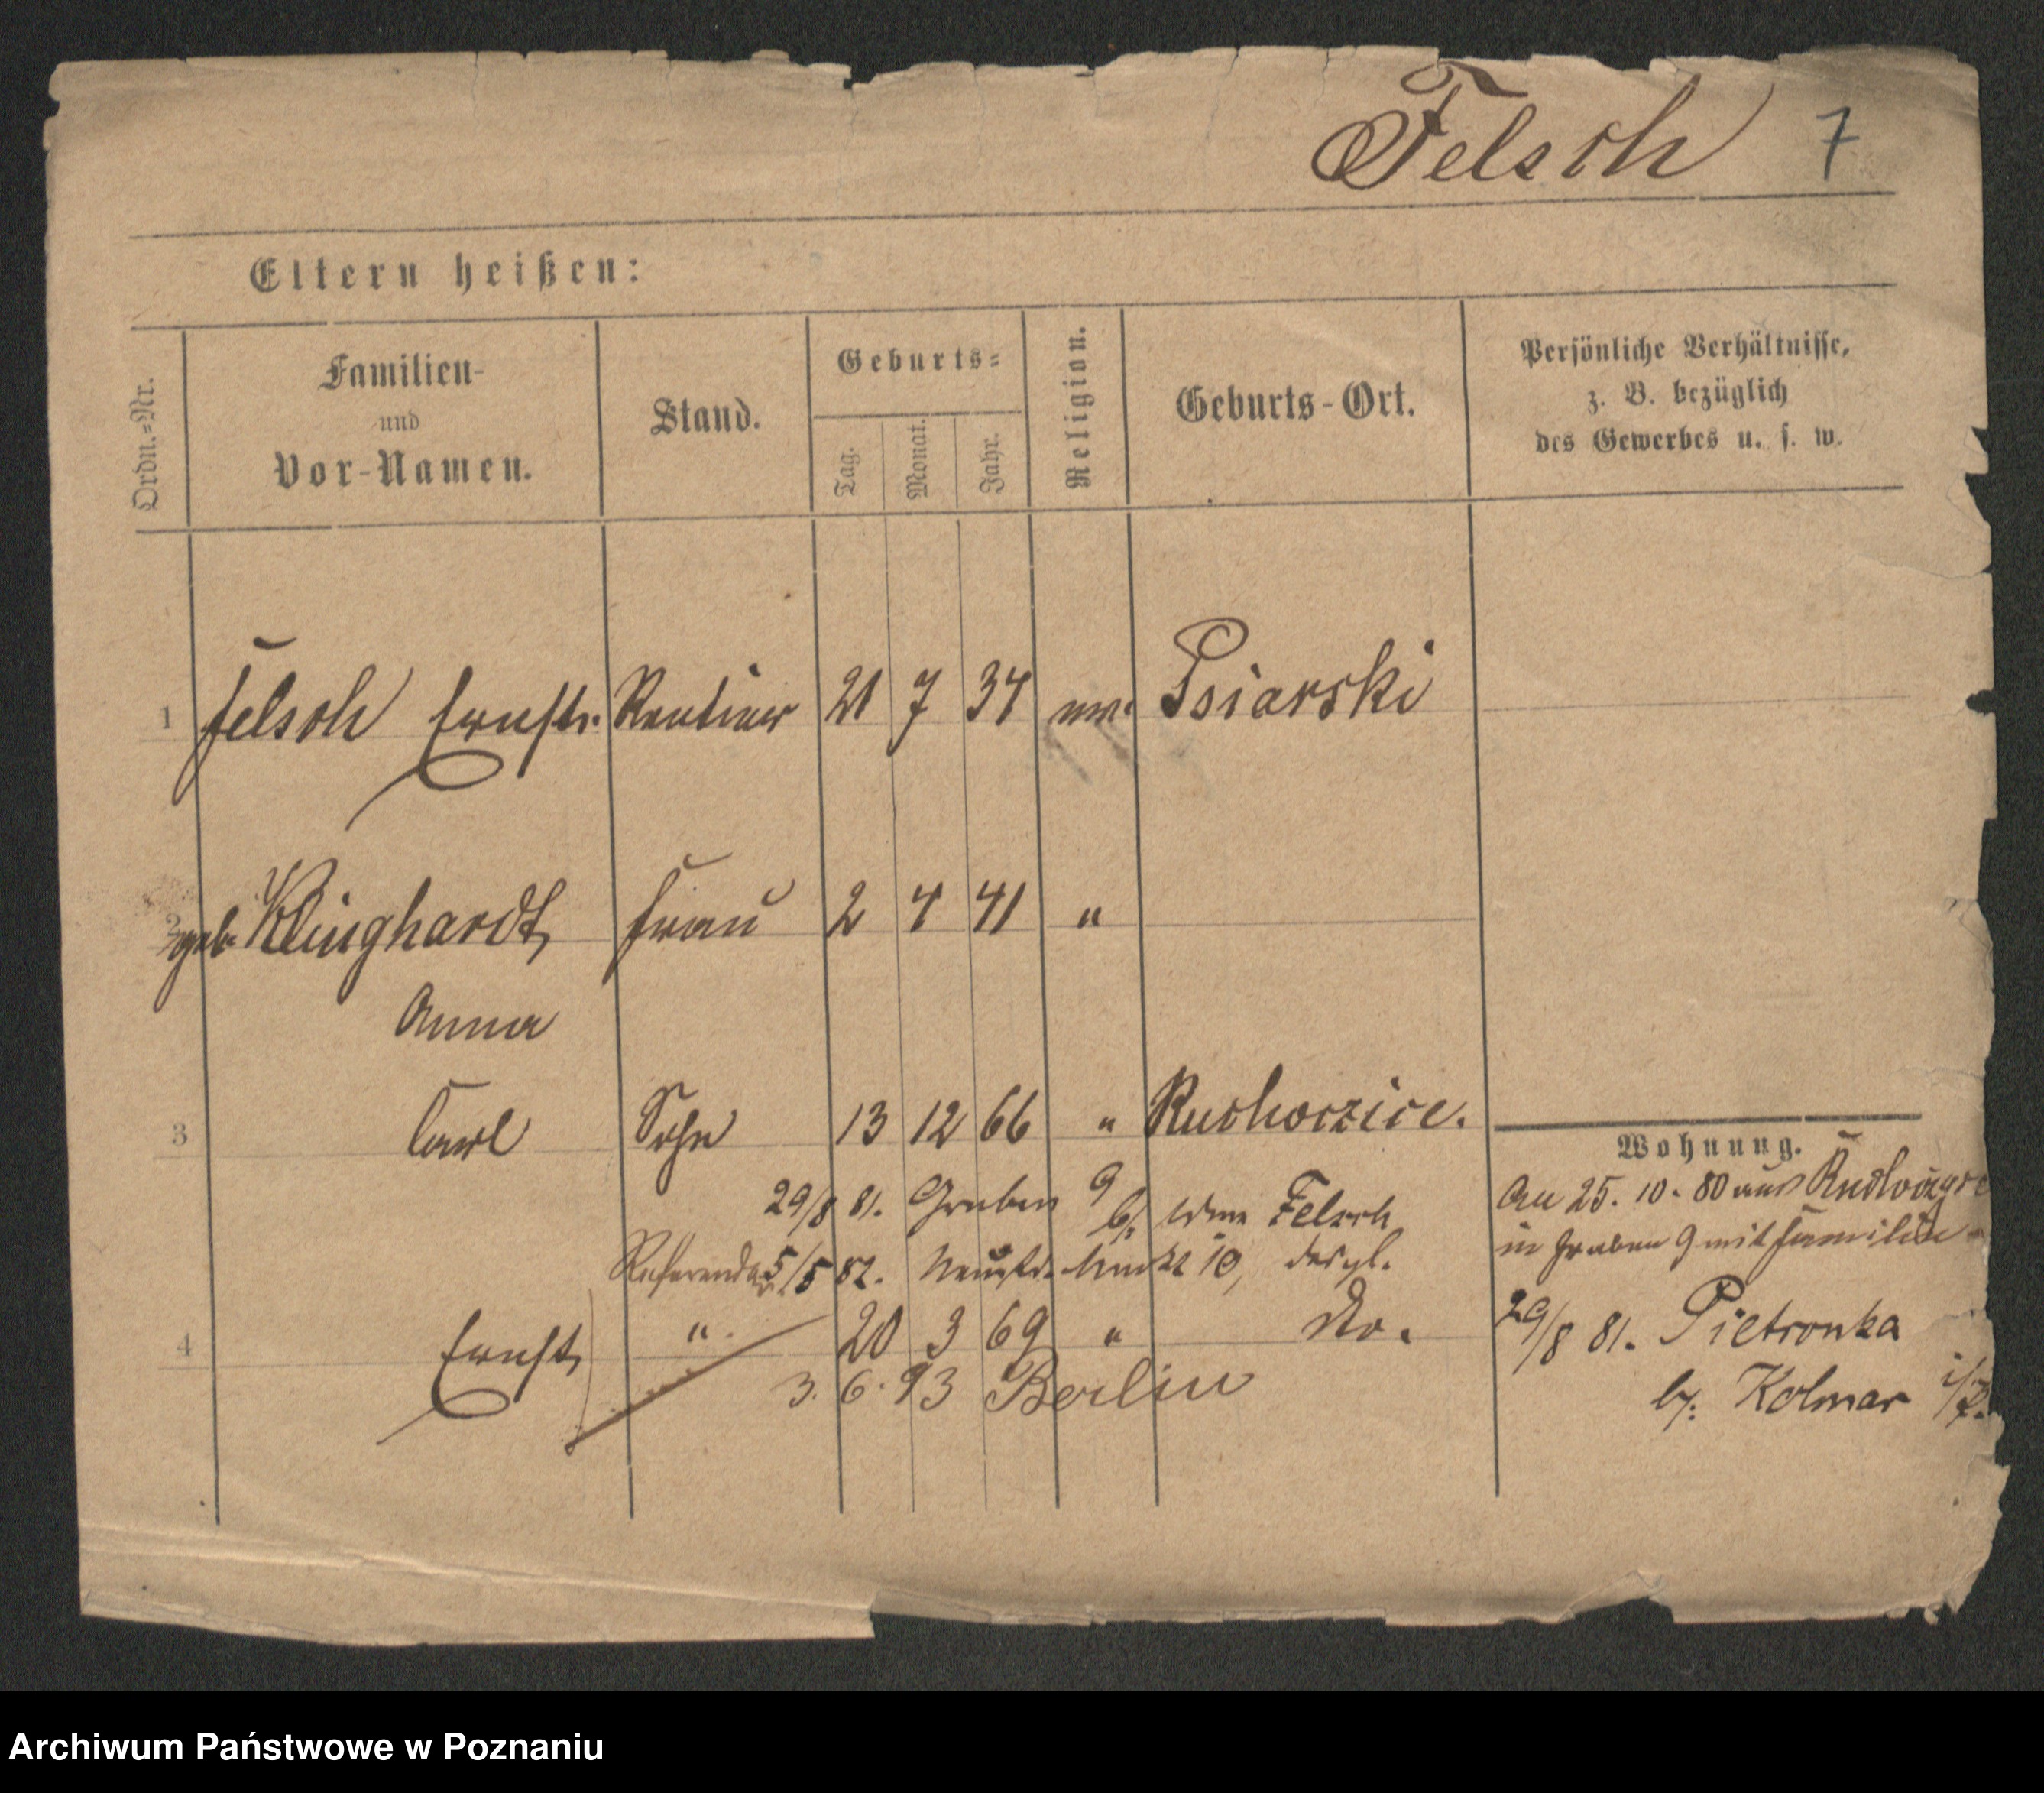 Felsch 7
Eltern heißen:
Ordn.-Nr.
Familien-
und
Vor-Namen.
Stand.
Geburts-
Tag.
Monat.
Jahr.
Religion.
Geburts-Ort.
Persönliche Verhältnisse,
z. B. bezüglich
des Gewerbes u. s. w.
1 Felsch Ernst Rentier 21 7 37 Psiarski
2 geb Klinghardt, Frau 2 4 41 "
Anna
3 Carl Sohn 13 12 66 " Ruchoczice.
Wohnung.
29/8 81. Graben 9 b/. Wwe Felsch
Referendar 5/5 82. Neustr. Markt 10, desgl.
An 25. 10. 80 aus
in Graben 9 mit Familie
4 Ernst " 20 3 69 " Do.
3. 6. 93 Berlin
29/8 81. Pietronka
b/. Kolmar i/P.
Archiwum Państwowe w Poznaniu